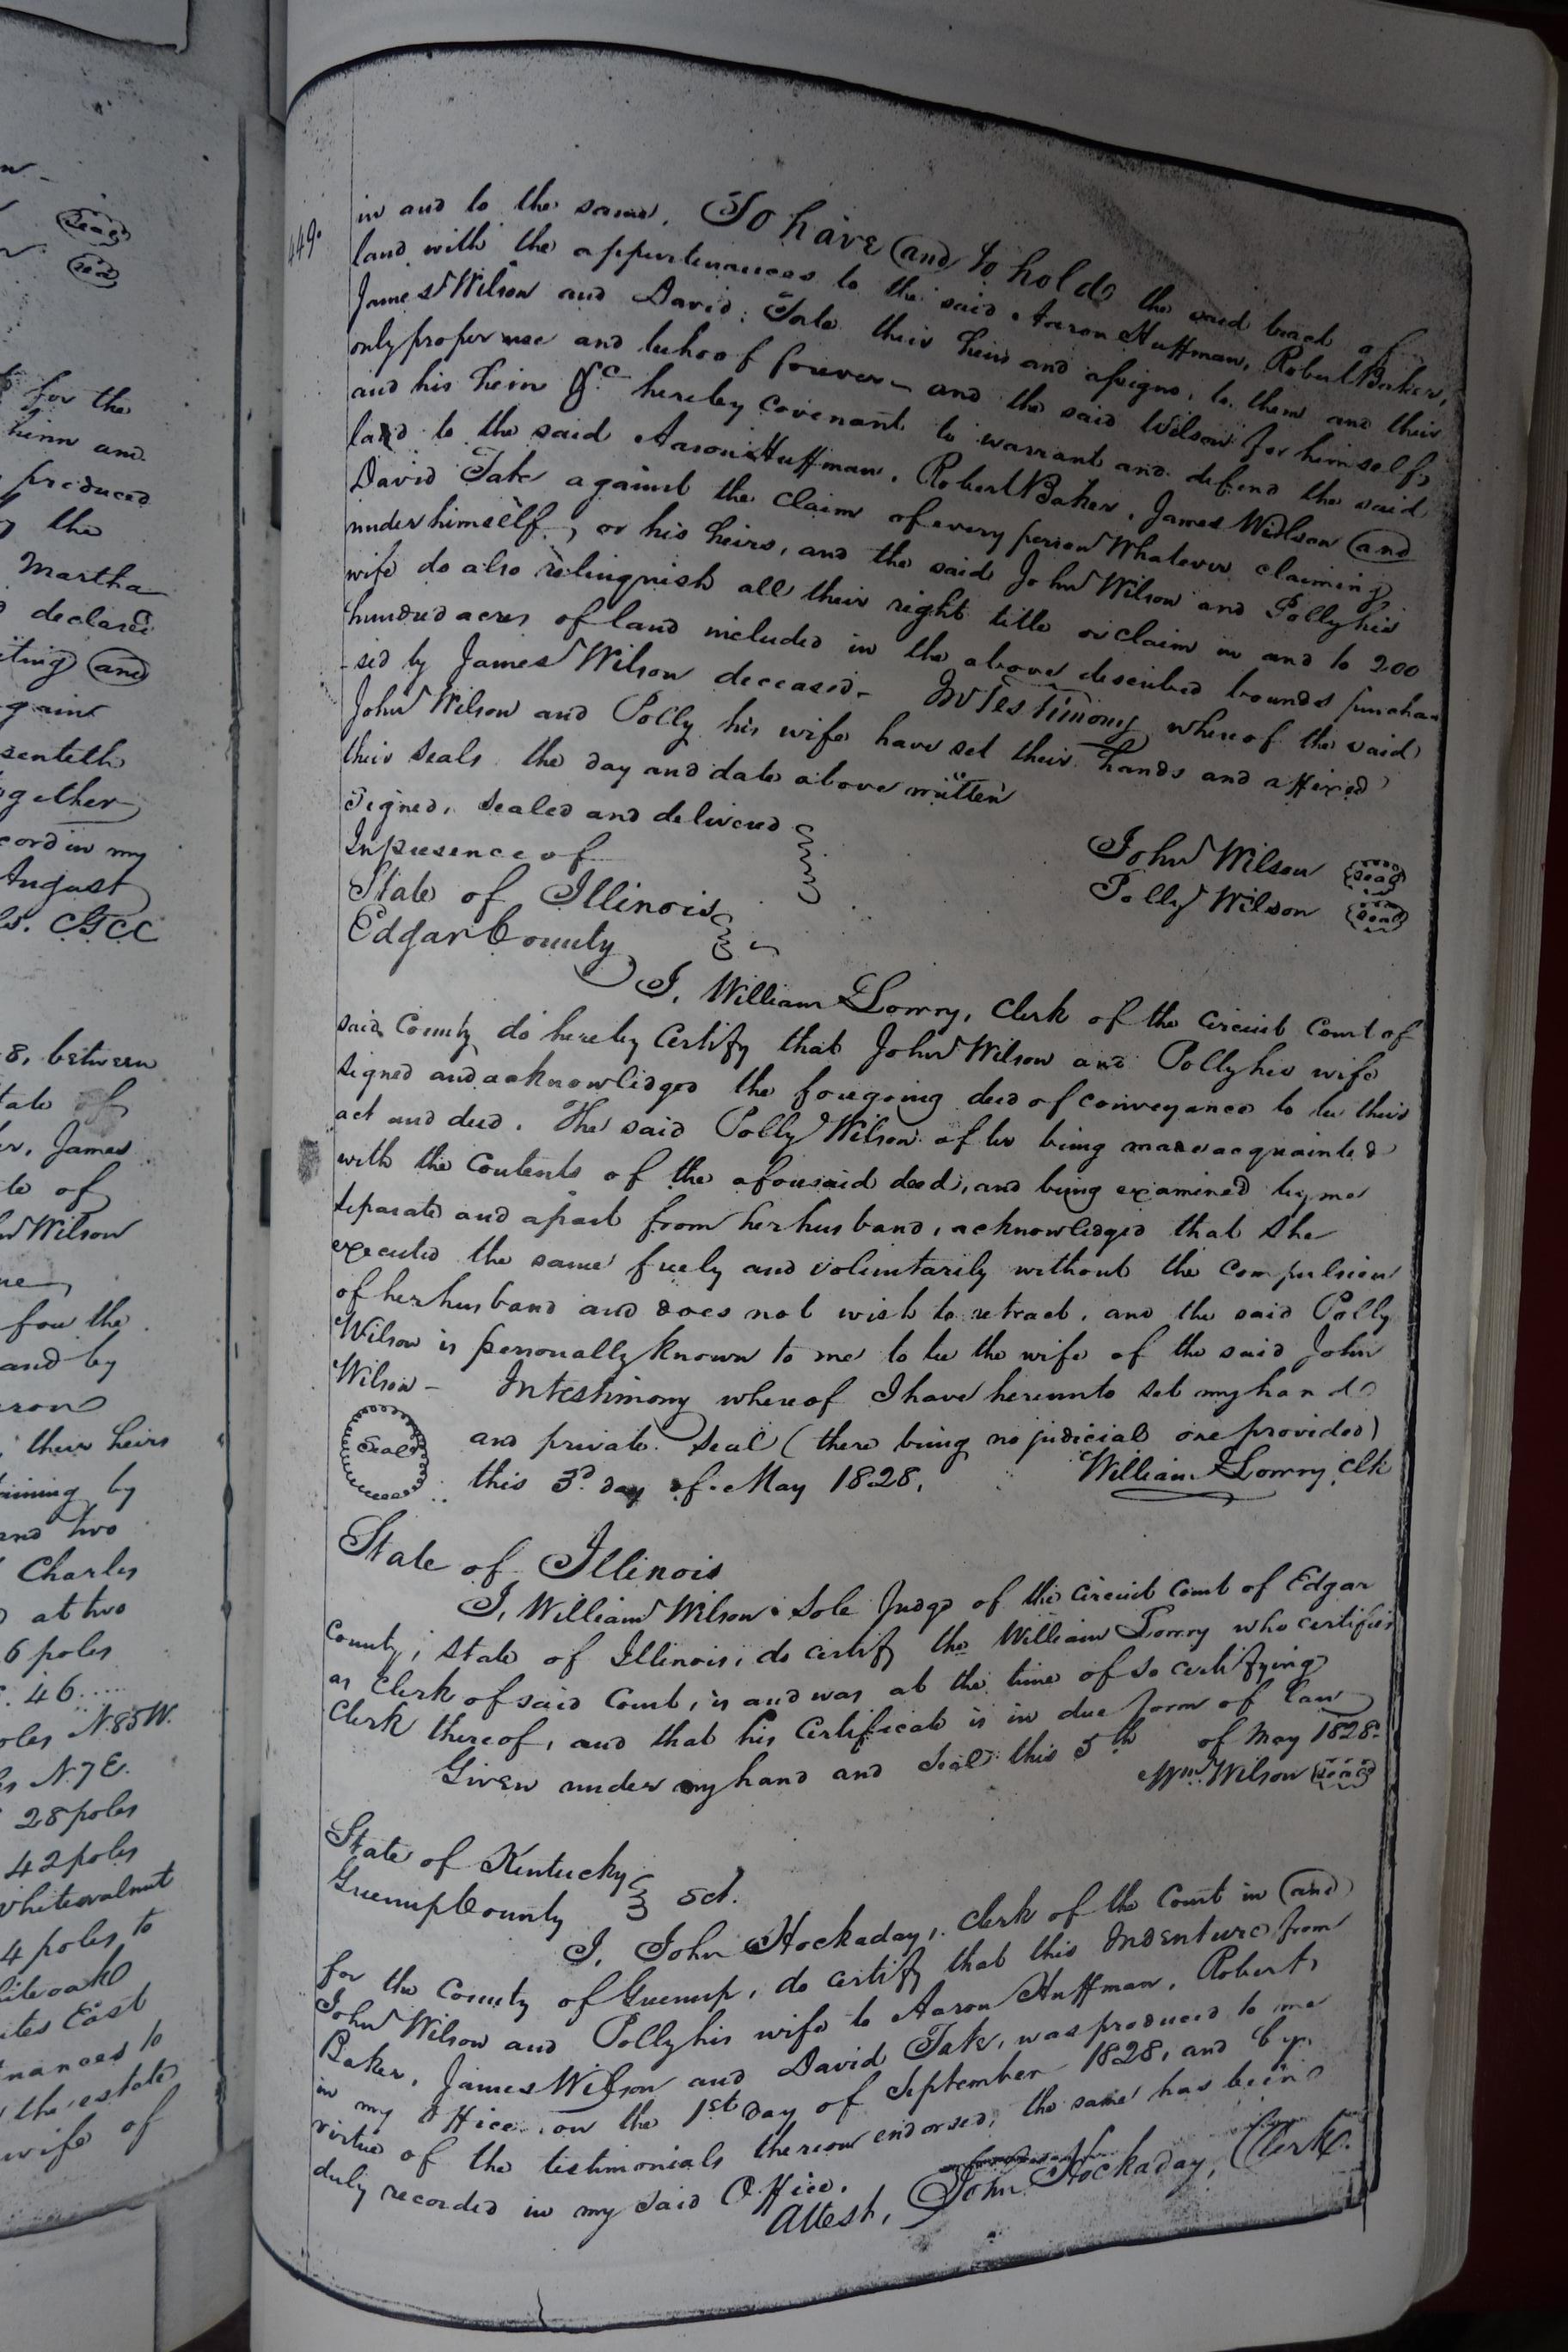 Seal
Seal
for the
heirs and
produced
the
Martha
declared
and
gain
senteth
gether
cord in my
August
GCC
8, between
tate of
James
te of
Wilson
for the
and by
their heirs
by
and two
Charles
at two
6 poles
46
N. 85 W.
N. 7 E.
28 poles
42 poles
white walnut
4 poles to
East
nances to
the estate
wife of
449.
in and to the same. To have and to hold the said tract of
land with the appurtenances to the said Aaron Huffman, Robert Baker,
James Wilson and David Tate their heirs and assigns, to them and their
only proper use and behoof forever - and the said Wilson for himself,
and his heirs &c hereby covenant to warrant and defend the said
land to the said Aaron Huffman, Robert Baker, James Wilson and
David Tate against the claim of every person Whatever claiming
under himself, or his heirs, and the said John Wilson and Polly his
wife do also relinquish all their right title or claim in and to 200
hundred acres of land included in the above described bounds purcha
-sed by James Wilson deceased - In Testimony whereof the said
John Wilson and Polly his wife have set their hands and affixed
their seals the day and date above written
Signed, sealed and delivered
In presence of
John Wilson Seal
Polly Wilson Seal
State of Illinois
Edgar County
I, William Lowry, Clerk of the Circuit Court of
said County do hereby Certify that John Wilson and Polly his wife
signed and acknowledged the foregoing deed of conveyance to be their
act and deed. The said Polly Wilson after being made acquainted
with the Contents of the aforesaid deed, and being examined by me
separate and apart from her husband, acknowledged that she
executed the same freely and voluntarily without the compulsion
of her husband and does not wish to retract, and the said Polly
Wilson is personally known to me to be the wife of the said John
Wilson - In testimony whereof I have hereunto set my hand
Seal and private Seal (there being no judicial one provided)
this 3d day of May 1828. William Lowry Clk
State of Illinois
I, William Wilson sole Judge of the Circuit Court of Edgar
County, State of Illinois, do certify the William Lowry who certifies
as Clerk of said Court, is and was at the time of so certifying
Clerk thereof, and that his Certificate is in due form of law
Given under my hand and Seal this 5th of May 1828.
Wm. Wilson Seal
State of Kentucky
Greenup County Sct.
I, John Hockaday, Clerk of the Court in and
for the County of Greenup, do certify that this Indenture from
John Wilson and Polly his wife to Aaron Huffman, Robert
Baker, James Wilson and David Tate, was produced to me
in my Office on the 1st day of September 1828, and by
virtue of the testimonials thereon endorsed, the same has been
duly recorded in my said Office.
Attest, John Hockaday, Clerk.